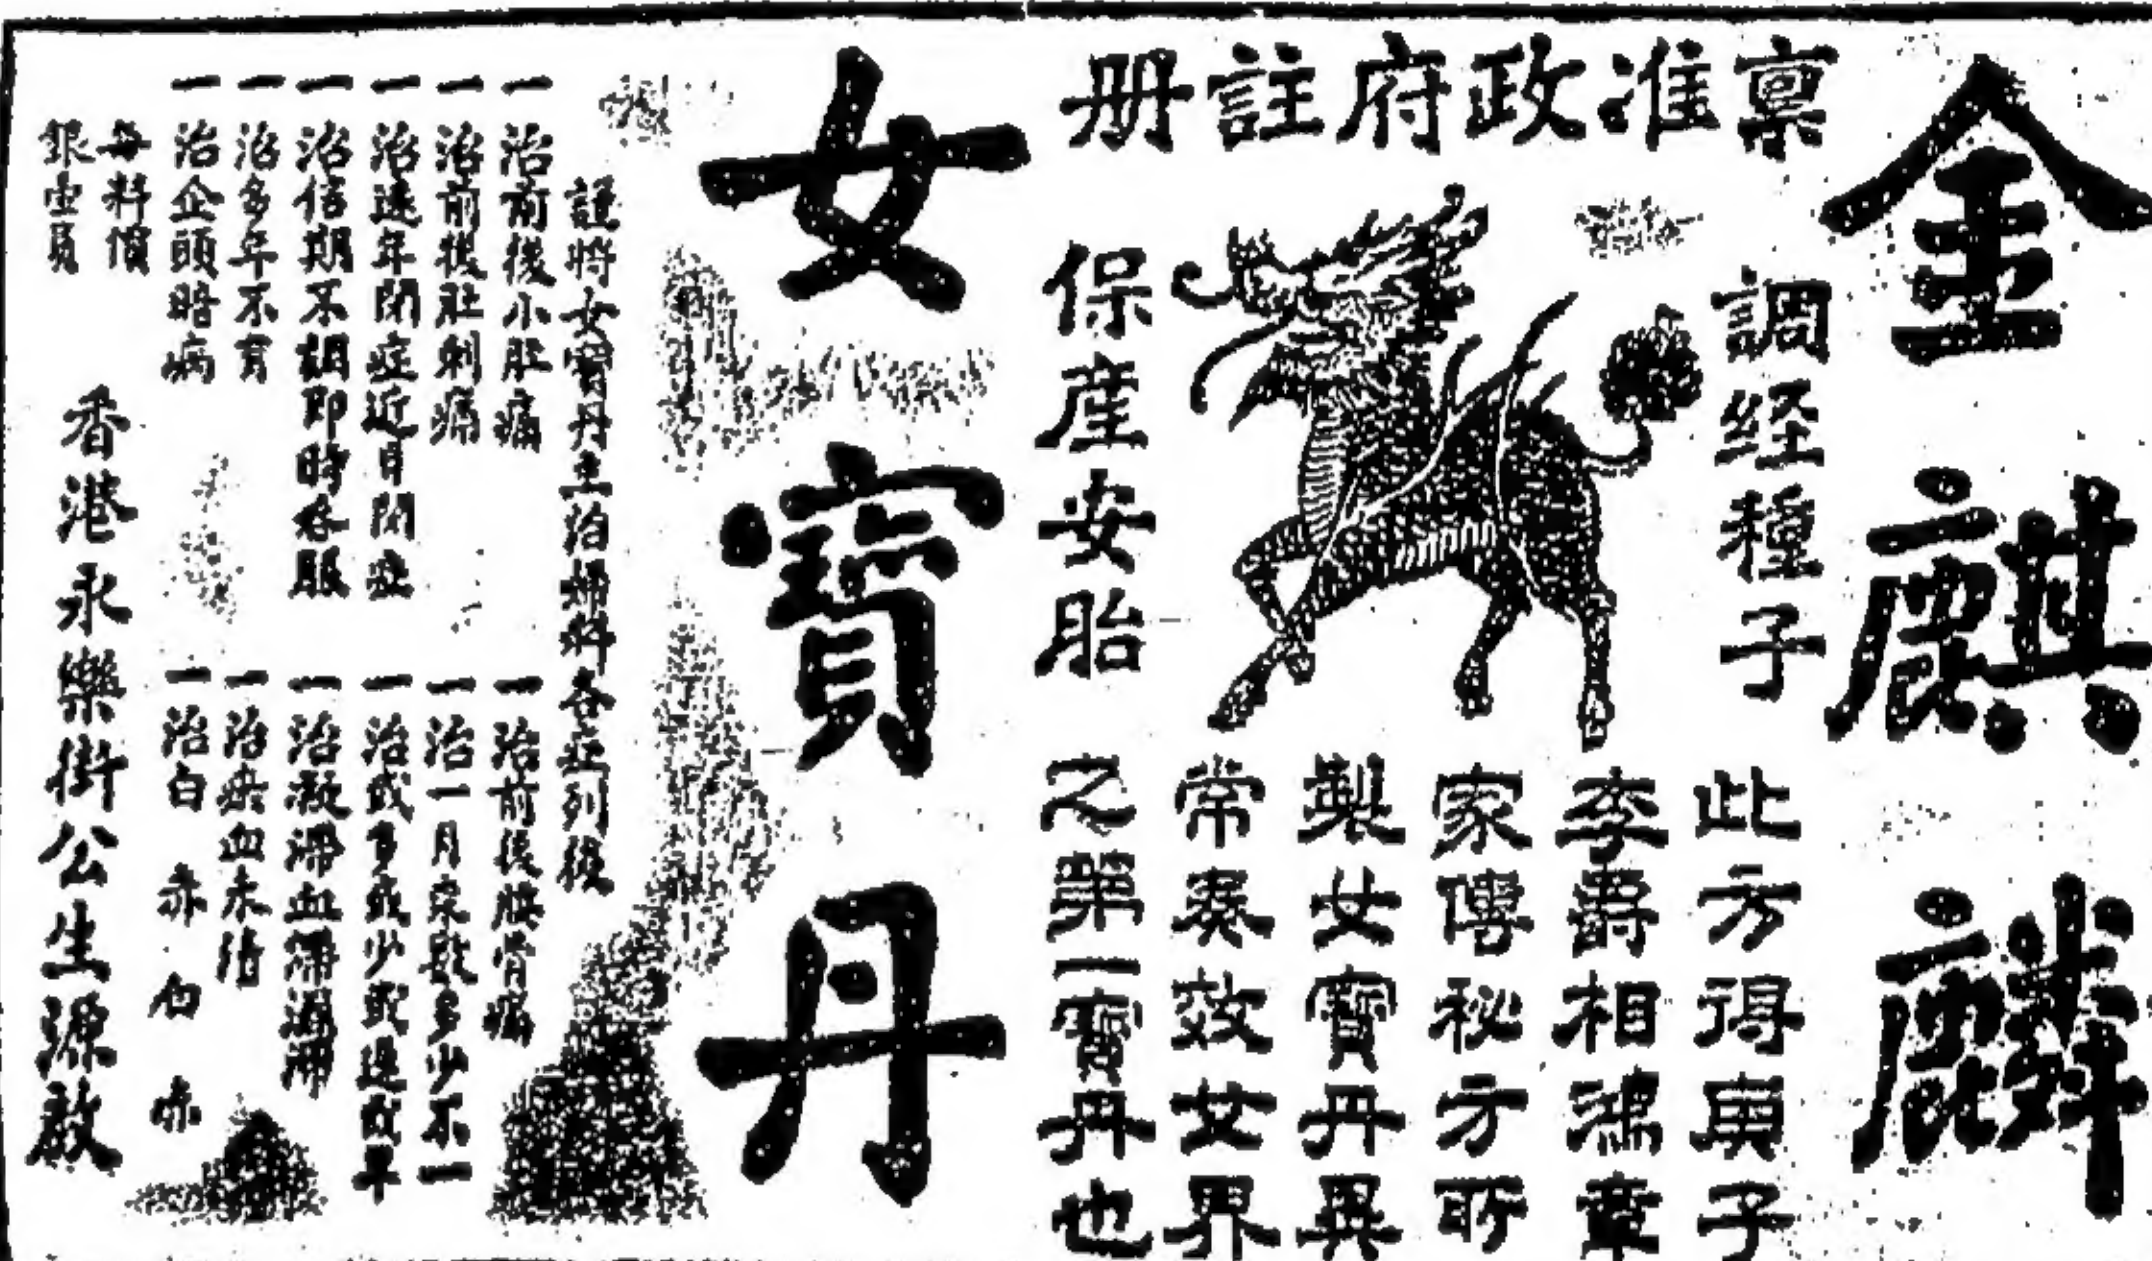 金麒麟
稟准政府註册
調経種子
保産安胎
此方得庚子
李爵相鴻章
家傳秘方所
製女寶丹異
常奏效女界
之第一寶丹也
女寶丹
謹將女寶丹主治婦科各症列後
一治前後小肚痛
一治前後肚刺痛
一治遠年閉症近日閉症
一治信期不調即時各服
一治多年不育
一治企頭暗病
一治前後腰骨痛
一治一月來數多少不一
一治或多或少或遲或早
一治凝滯血滯濕滯
一治瘀血未清
一治白 赤 白 赤
每料價
銀壹員
香港永樂街公生源啟